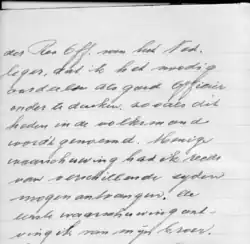 der Res Off. van het Ned.
leger, dat ik het noodig
oordeelen als goed Officier
onder te duiken, zooals dit
heden in de volksmond
wordt genoemd. Menige
waarschuwing had ik reeds
van verschillende zijden
mogen ontvangen. De
eerste waarschuwing ont-
ving ik van mijn broer.